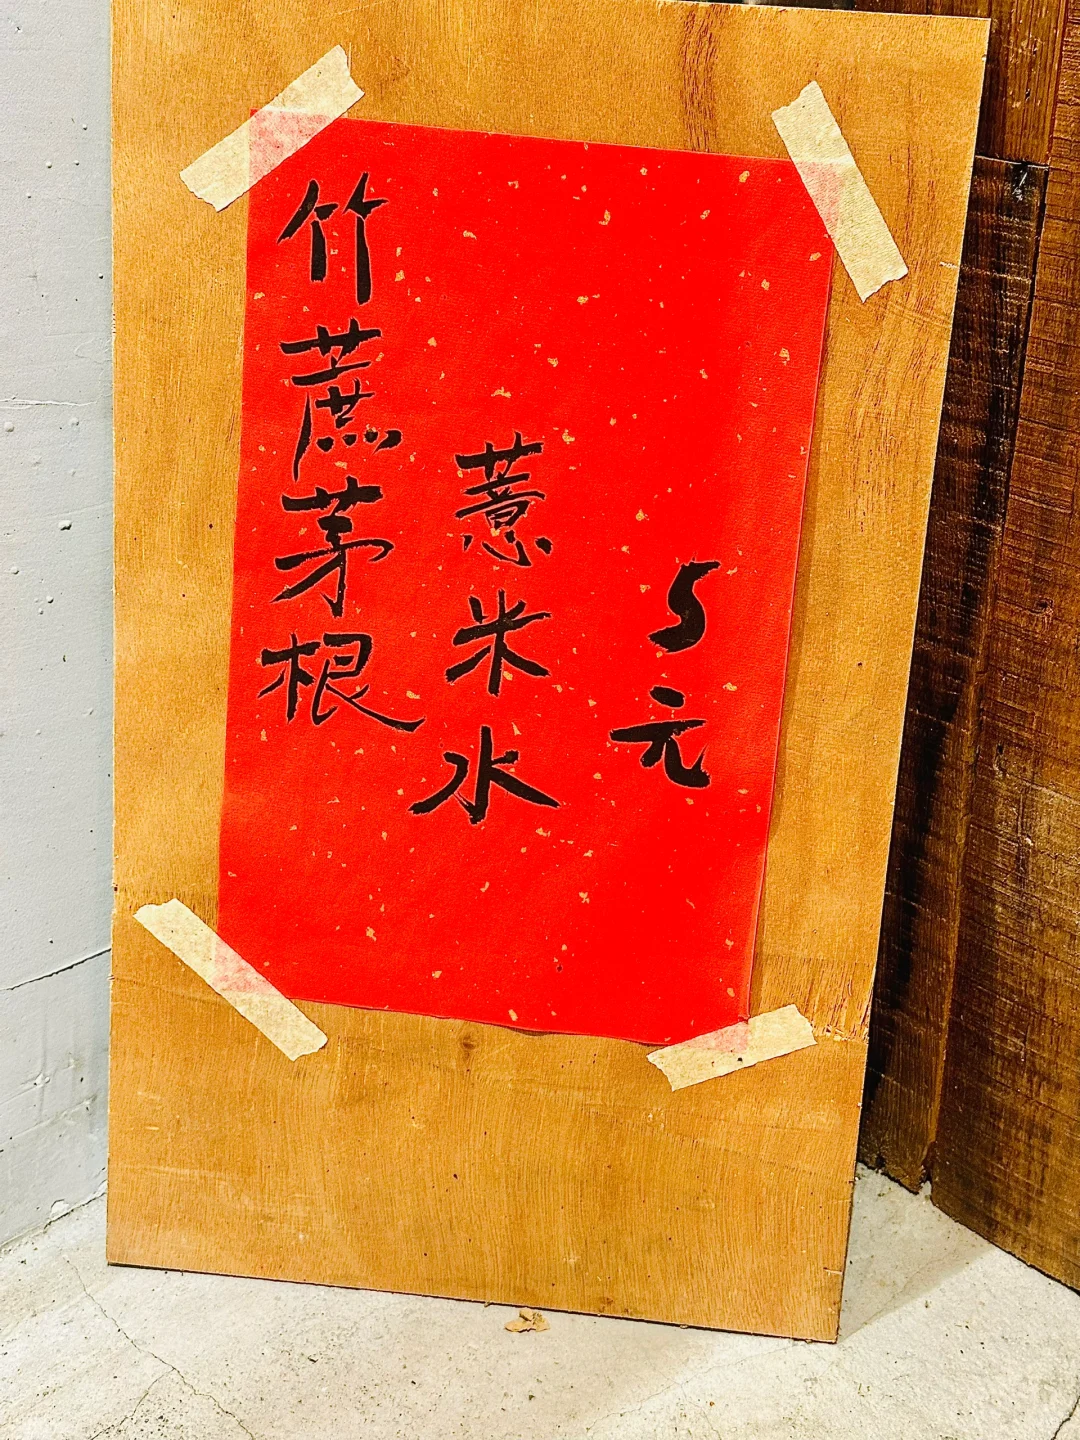 竹蔗茅根
薏米水
5元